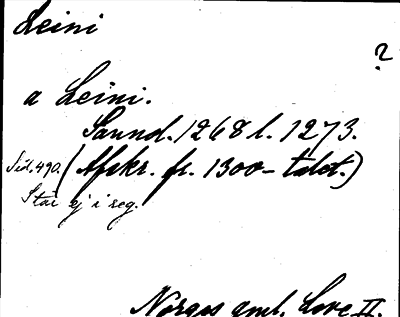 Leini
?
a Leini.
Sannd. 1268 l. 1273.
Sid. 490. (Afskr. fr. 1300-talet.)
Står ej i reg.
Norges gml. Love II.